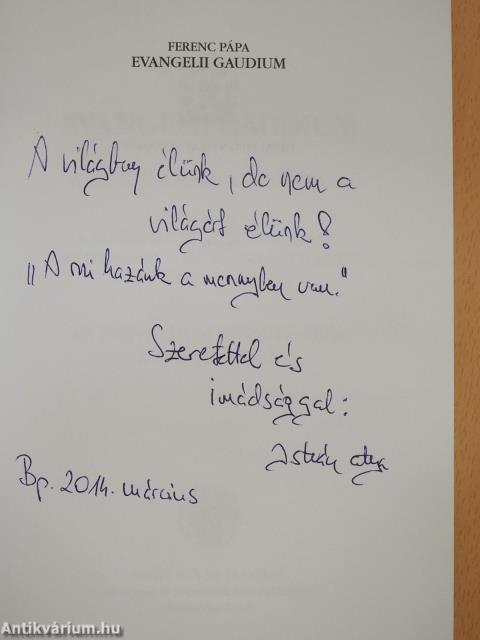 FERENC PÁPA
EVANGELII GAUDIUM
A világban élünk, de nem a
világért élünk!
„A mi hazánk a mennyben van."
Szeretettel és
imádsággal:
István atya
Bp. 2014. március
Antikvárium.hu